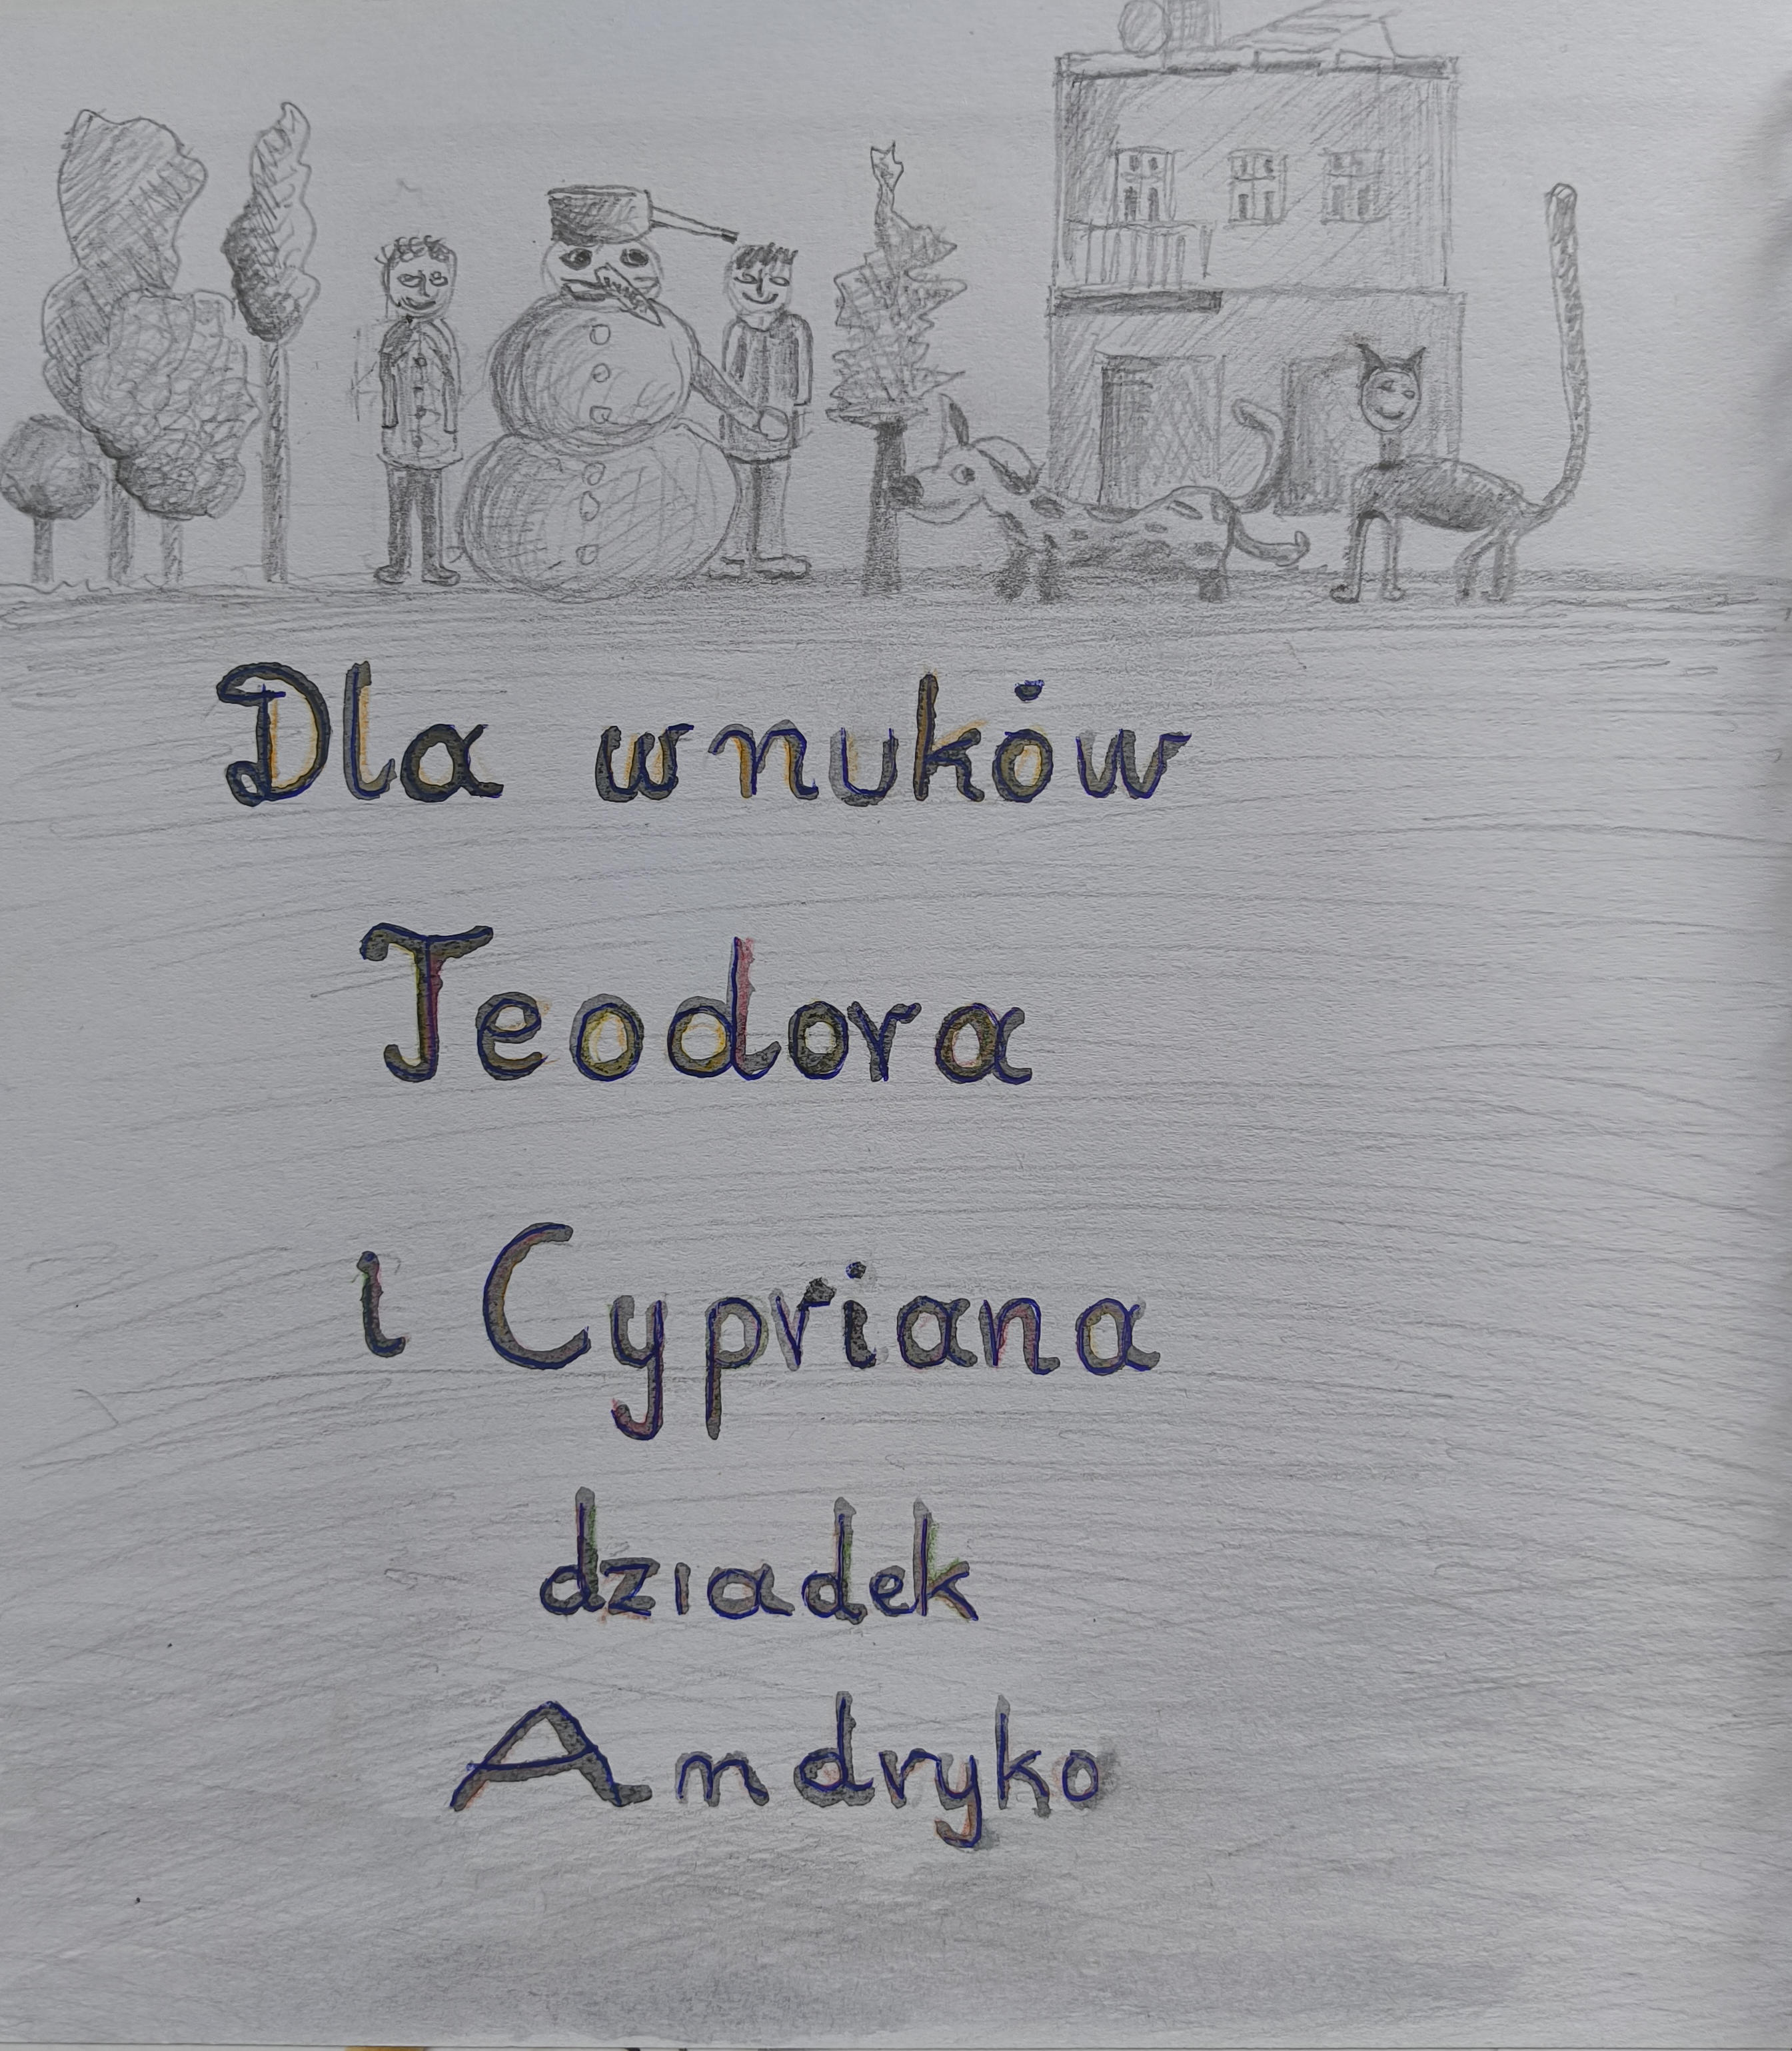 Dla wnuków
Teodora
i Cypriana
dziadek
Andryko